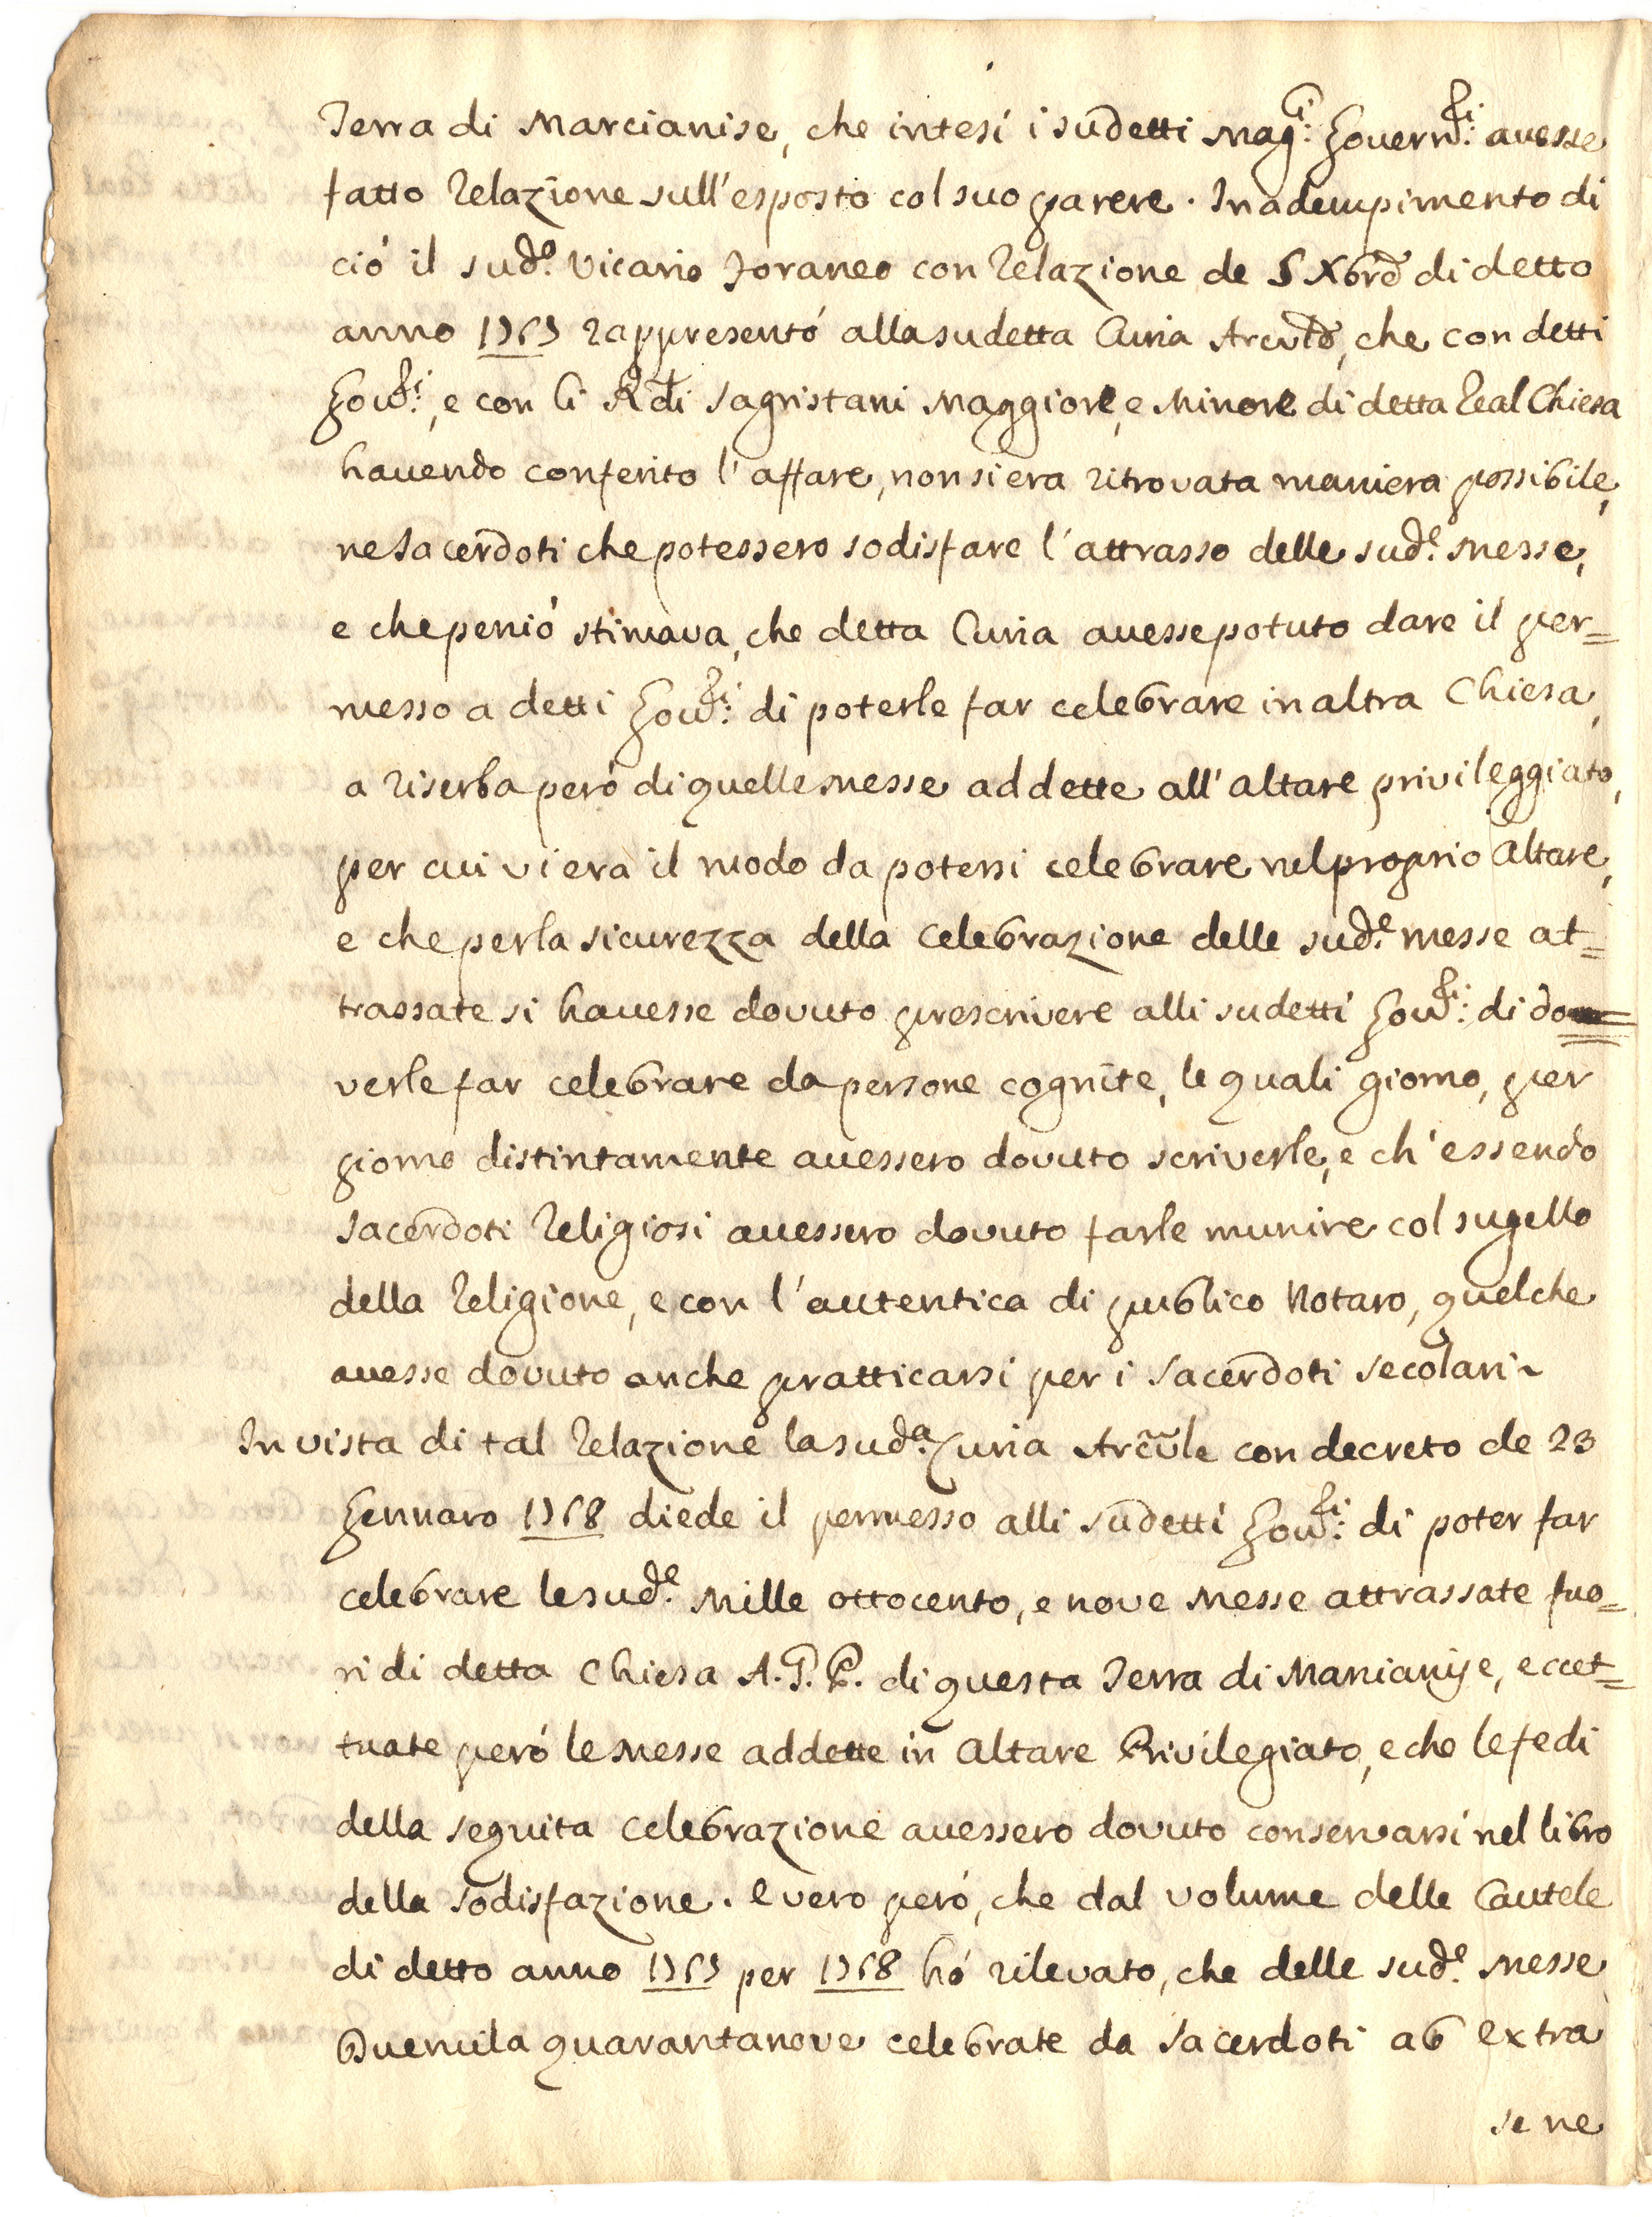 Terra di Marcianise, che intesi i sudetti Mag:ci Govern:ri avesse
fatto Relazione sull'esposto col suo parere. In adempimento di
ciò il sud:o Vicario Foraneo con Relazione de 5 Xbre di detto
anno 1767 rappresentò alla sudetta Curia Arcivle, che con detti
Gov:ri, e con li Rdi Sagristani Maggiore, e Minore di detta Real Chiesa
havendo conferito l'affare, non si era ritrovata maniera possibile,
ne Sacerdoti che potessero sodisfare l'attrasso delle sud:e Messe,
e che perciò stimava, che detta Curia avesse potuto dare il per=
messo a detti Gov:ri di poterle far celebrare in altra Chiesa,
a riserba però di quelle Messe addette all'altare privileggiato,
per cui vi era il modo da potersi celebrare nel proprio Altare,
e che per la sicurezza della Celebrazione delle sud:e Messe at=
trassate si havesse dovuto prescrivere alli sudetti Gov:ri di do=
verle far celebrare da persone cognite, le quali giorno, per
giorno distintamente avessero dovuto scriverle, e ch'essendo
Sacerdoti Religiosi avessero dovuto farle munire col sugello
della Religione, e con l'autentica di publico Notaro, quelche
avesse dovuto anche pratticarsi per i Sacerdoti Secolari~
In vista di tal Relazione la sud:a Curia Arcivle con decreto de 23
Gennaro 1768 diede il permesso alli sudetti Gov:ri di poter far
celebrare le sud:e Mille ottocento, e nove Messe attrassate fuo=
ri di detta Chiesa A.G.P. di questa Terra di Marcianise, eccet=
tuate però le Messe addette in Altare Privilegiato, e che le fedi
della seguita Celebrazione avessero dovuto conservarsi nel libro
della Sodisfazione. E vero però, che dal volume delle Cautele
di detto anno 1767 per 1768 hó rilevato, che delle sud:e Messe
Duemila quarantanove celebrate da Sacerdoti ab extra
se ne